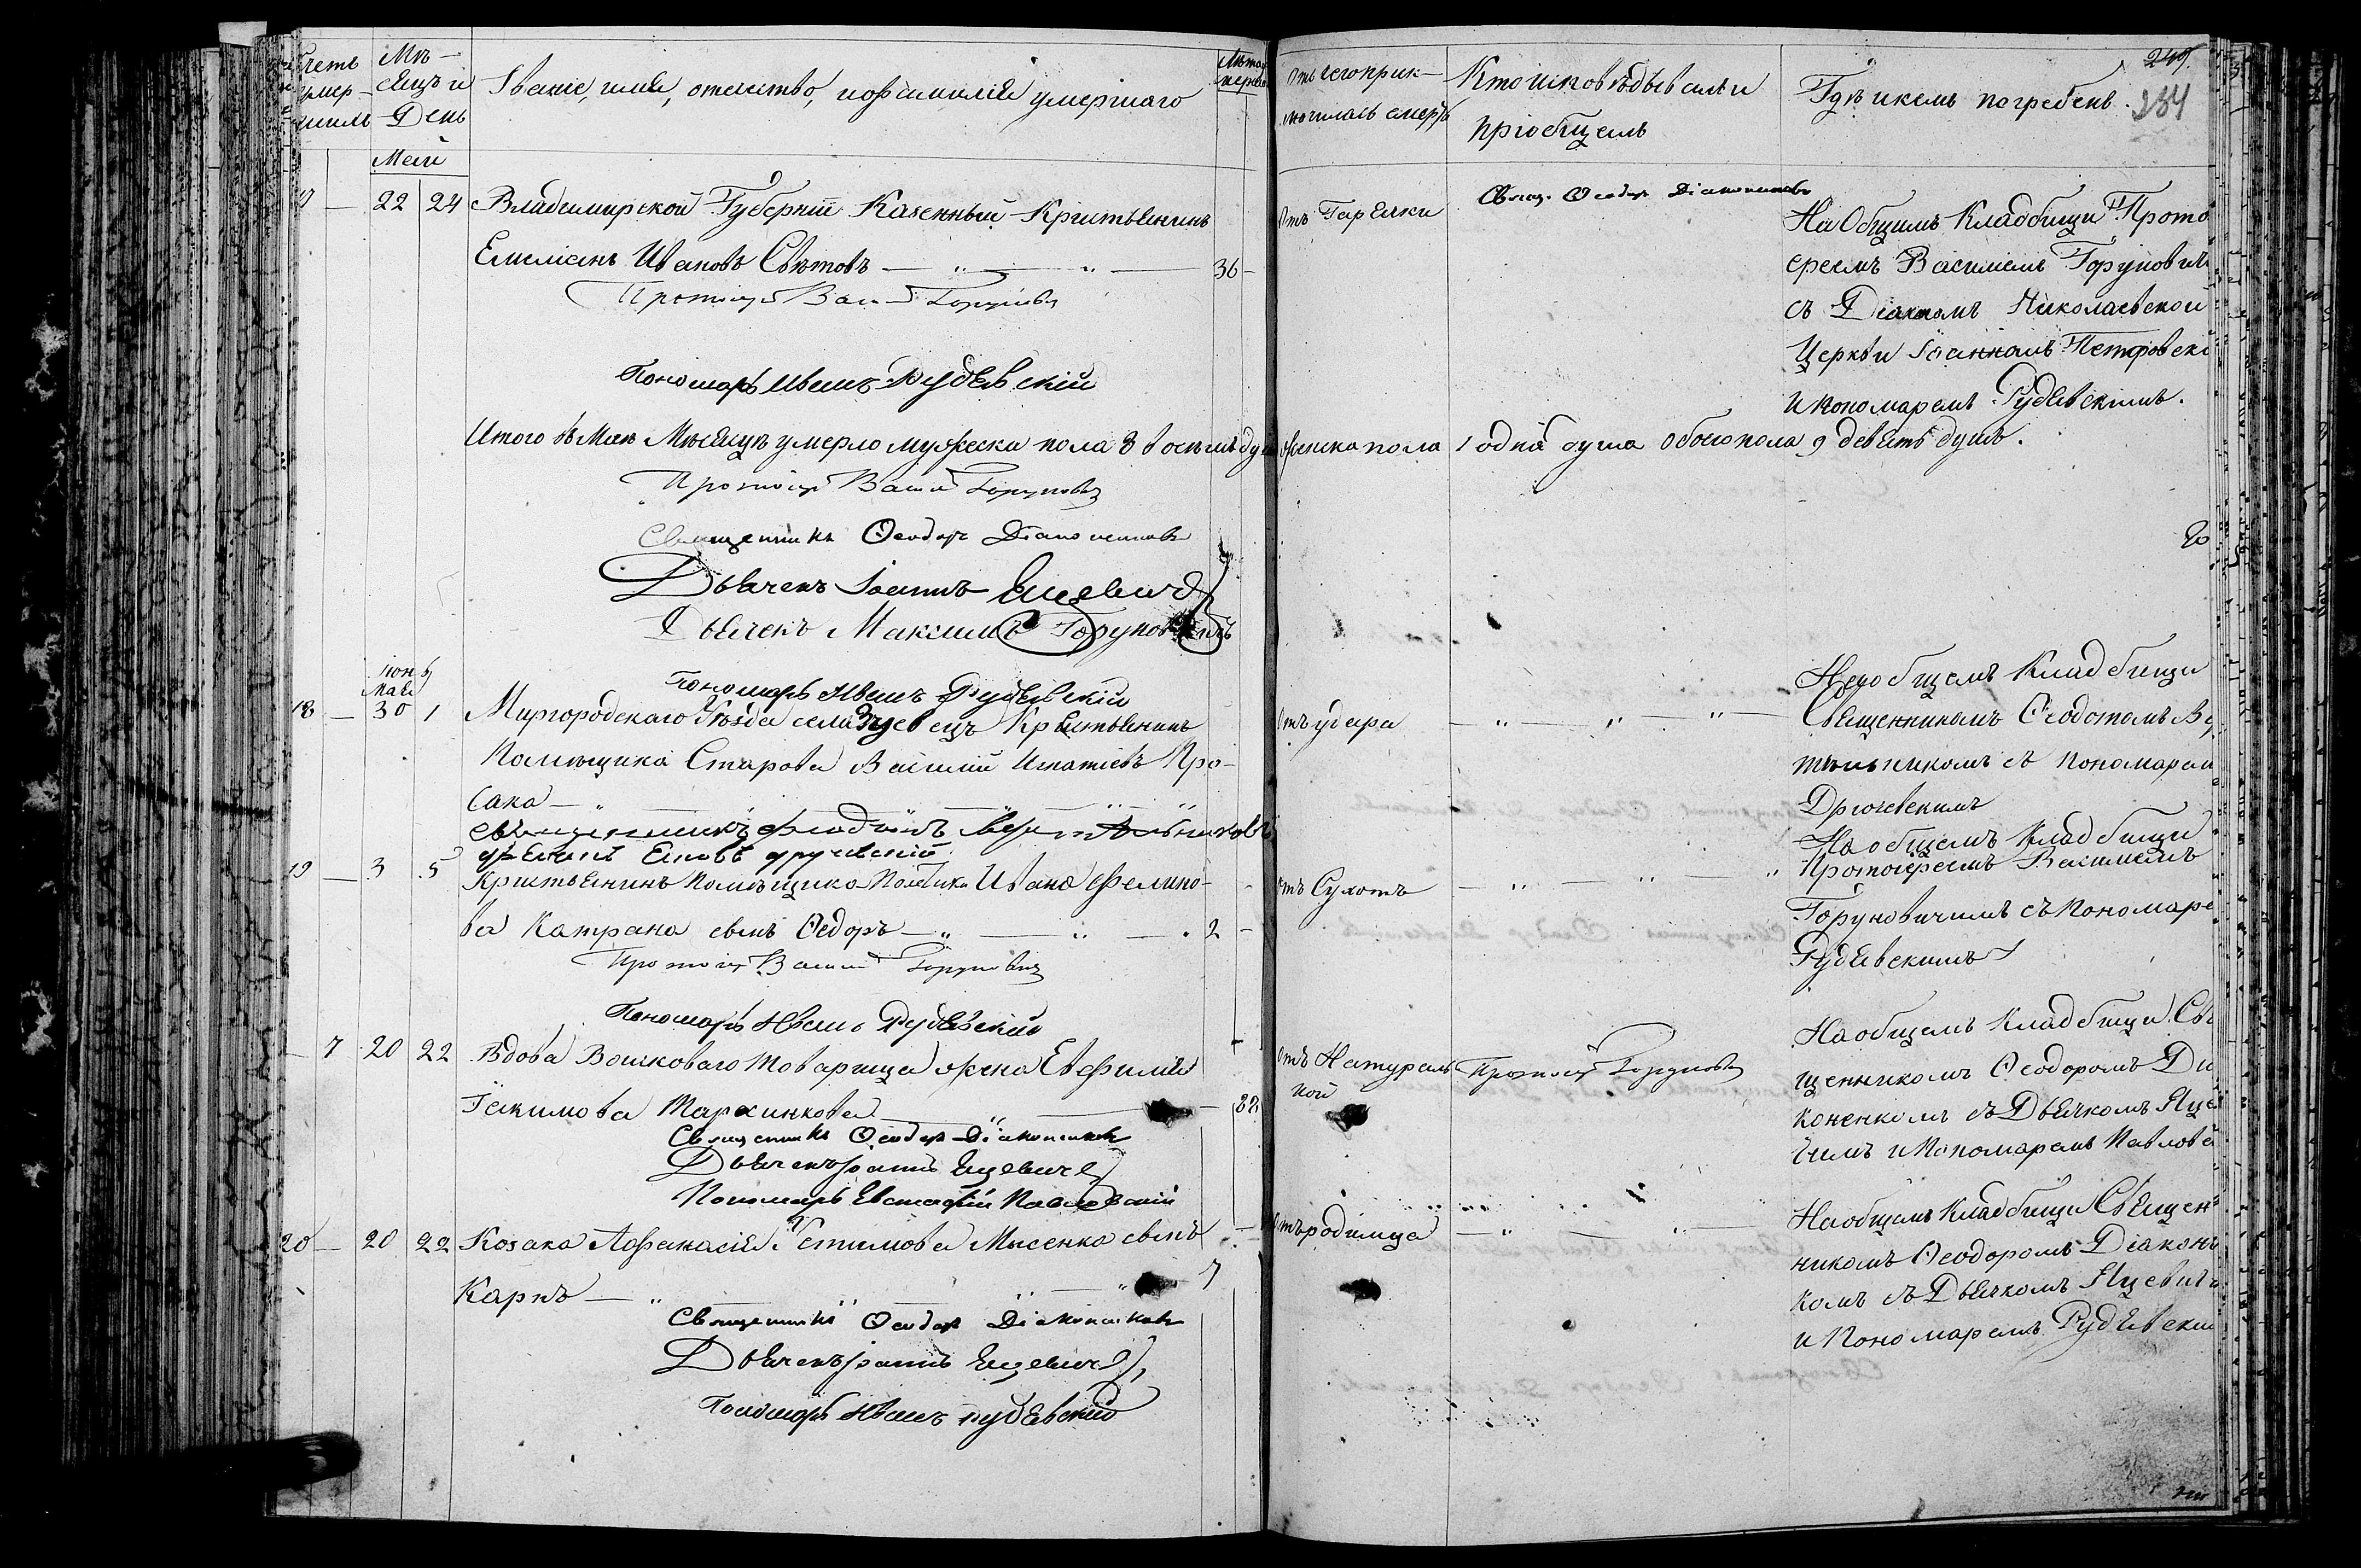 Счетъ умер-шихъ
Мѣ-сяцъ и День
Званіе, имя, отечество, и фамилія умершаго
Лѣта
Отъ чего приклю-чилась смерть
Кто исповѣдывалъ и пріобщалъ
Гдѣ и кемъ погребенъ
284
Май
22 24 Владимирской Губерніи Казенный Кристьянинъ
Емеліанъ Ивановъ Свѣтовъ 36
Отъ Гарячки
Свящ. Ѳеодоръ Діаконенковъ
На Общимъ Кладбищи Прото
ереемъ Василіемъ Горунович
съ Діакомъ Николаевской
Церкви Іоанномъ Петровски
и Пономаремъ Рудѣвскимъ.
Протоіер Васил Горуновичъ
Пономарь Иванъ Рудѣвскій
Итого въ Маѣ Мѣсяцѣ умерло мужеска пола 8 восемь душ женска пола 1 одна душа обоего пола 9 девять душъ.
Протоіер Васил Горуновичъ
Священникъ Ѳеодоръ Діаконенковъ
Дьячекъ Іоаннъ Яцевичъ
Дьячекъ Максимъ Горуновичъ
Пономарь Иванъ Рудѣвскій
Іюнь
Мая
18 — 30 1 Миргородскаго Уѣзда села Зуевецъ Крестьянинъ
Помѣщика Старова Василій Игнатіевъ Про-
сака
Отъ удара
На общемъ Кладбищи
Священникомъ Ѳеодотомъ
съ Пономарем
Дрючевскимъ
19 — 3 5 Кристьянинъ Помѣщика Полетики Ивана Филипо-
ва Катрана сынъ Ѳедоръ 2
Отъ Сухотъ
На общемъ Кладбищи
Протоіереемъ Василіемъ
Горуновичимъ съ Пономаре
Рудѣвскимъ
Протоіер Васил Горуновичъ
Пономарь Иванъ Рудѣвскій
— 7 20 22 Вдова Вошковаго Товарища жена Евфимія
Іакимова Тарахинкова
Отъ Натураль
ной
Протоіер Горуновичъ
На общемъ Кладбищи Свя
щенникомъ Ѳеодоромъ Діа
коненкомъ съ Дьячкомъ Яце
чимъ и Пономаремъ Павловс
Священникъ Ѳеодоръ Діаконенковъ
Дьячекъ Іоаннъ Яцевичъ
Пономарь Евстафій Павловскій
20 — 20 22 Козака Афанасія Устимова Мысенка сынъ
Карпъ 7
Отъ родимца
На общемъ Кладбищи Священ
никомъ Ѳеодоромъ Діакон
комъ съ Дьячкомъ Яцевич
и Пономаремъ Рудѣвским
Священникъ Ѳеодоръ Діаконенковъ
Дьячекъ Іоаннъ Яцевичъ
Пономарь Иванъ Рудѣвскій